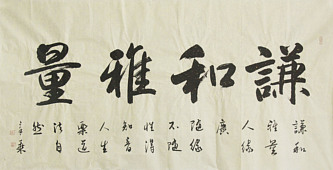 謙和雅量
謙和
雅量
人緣
廣
隨緣
不隨
性得
知音
人生
樂道
法自
然